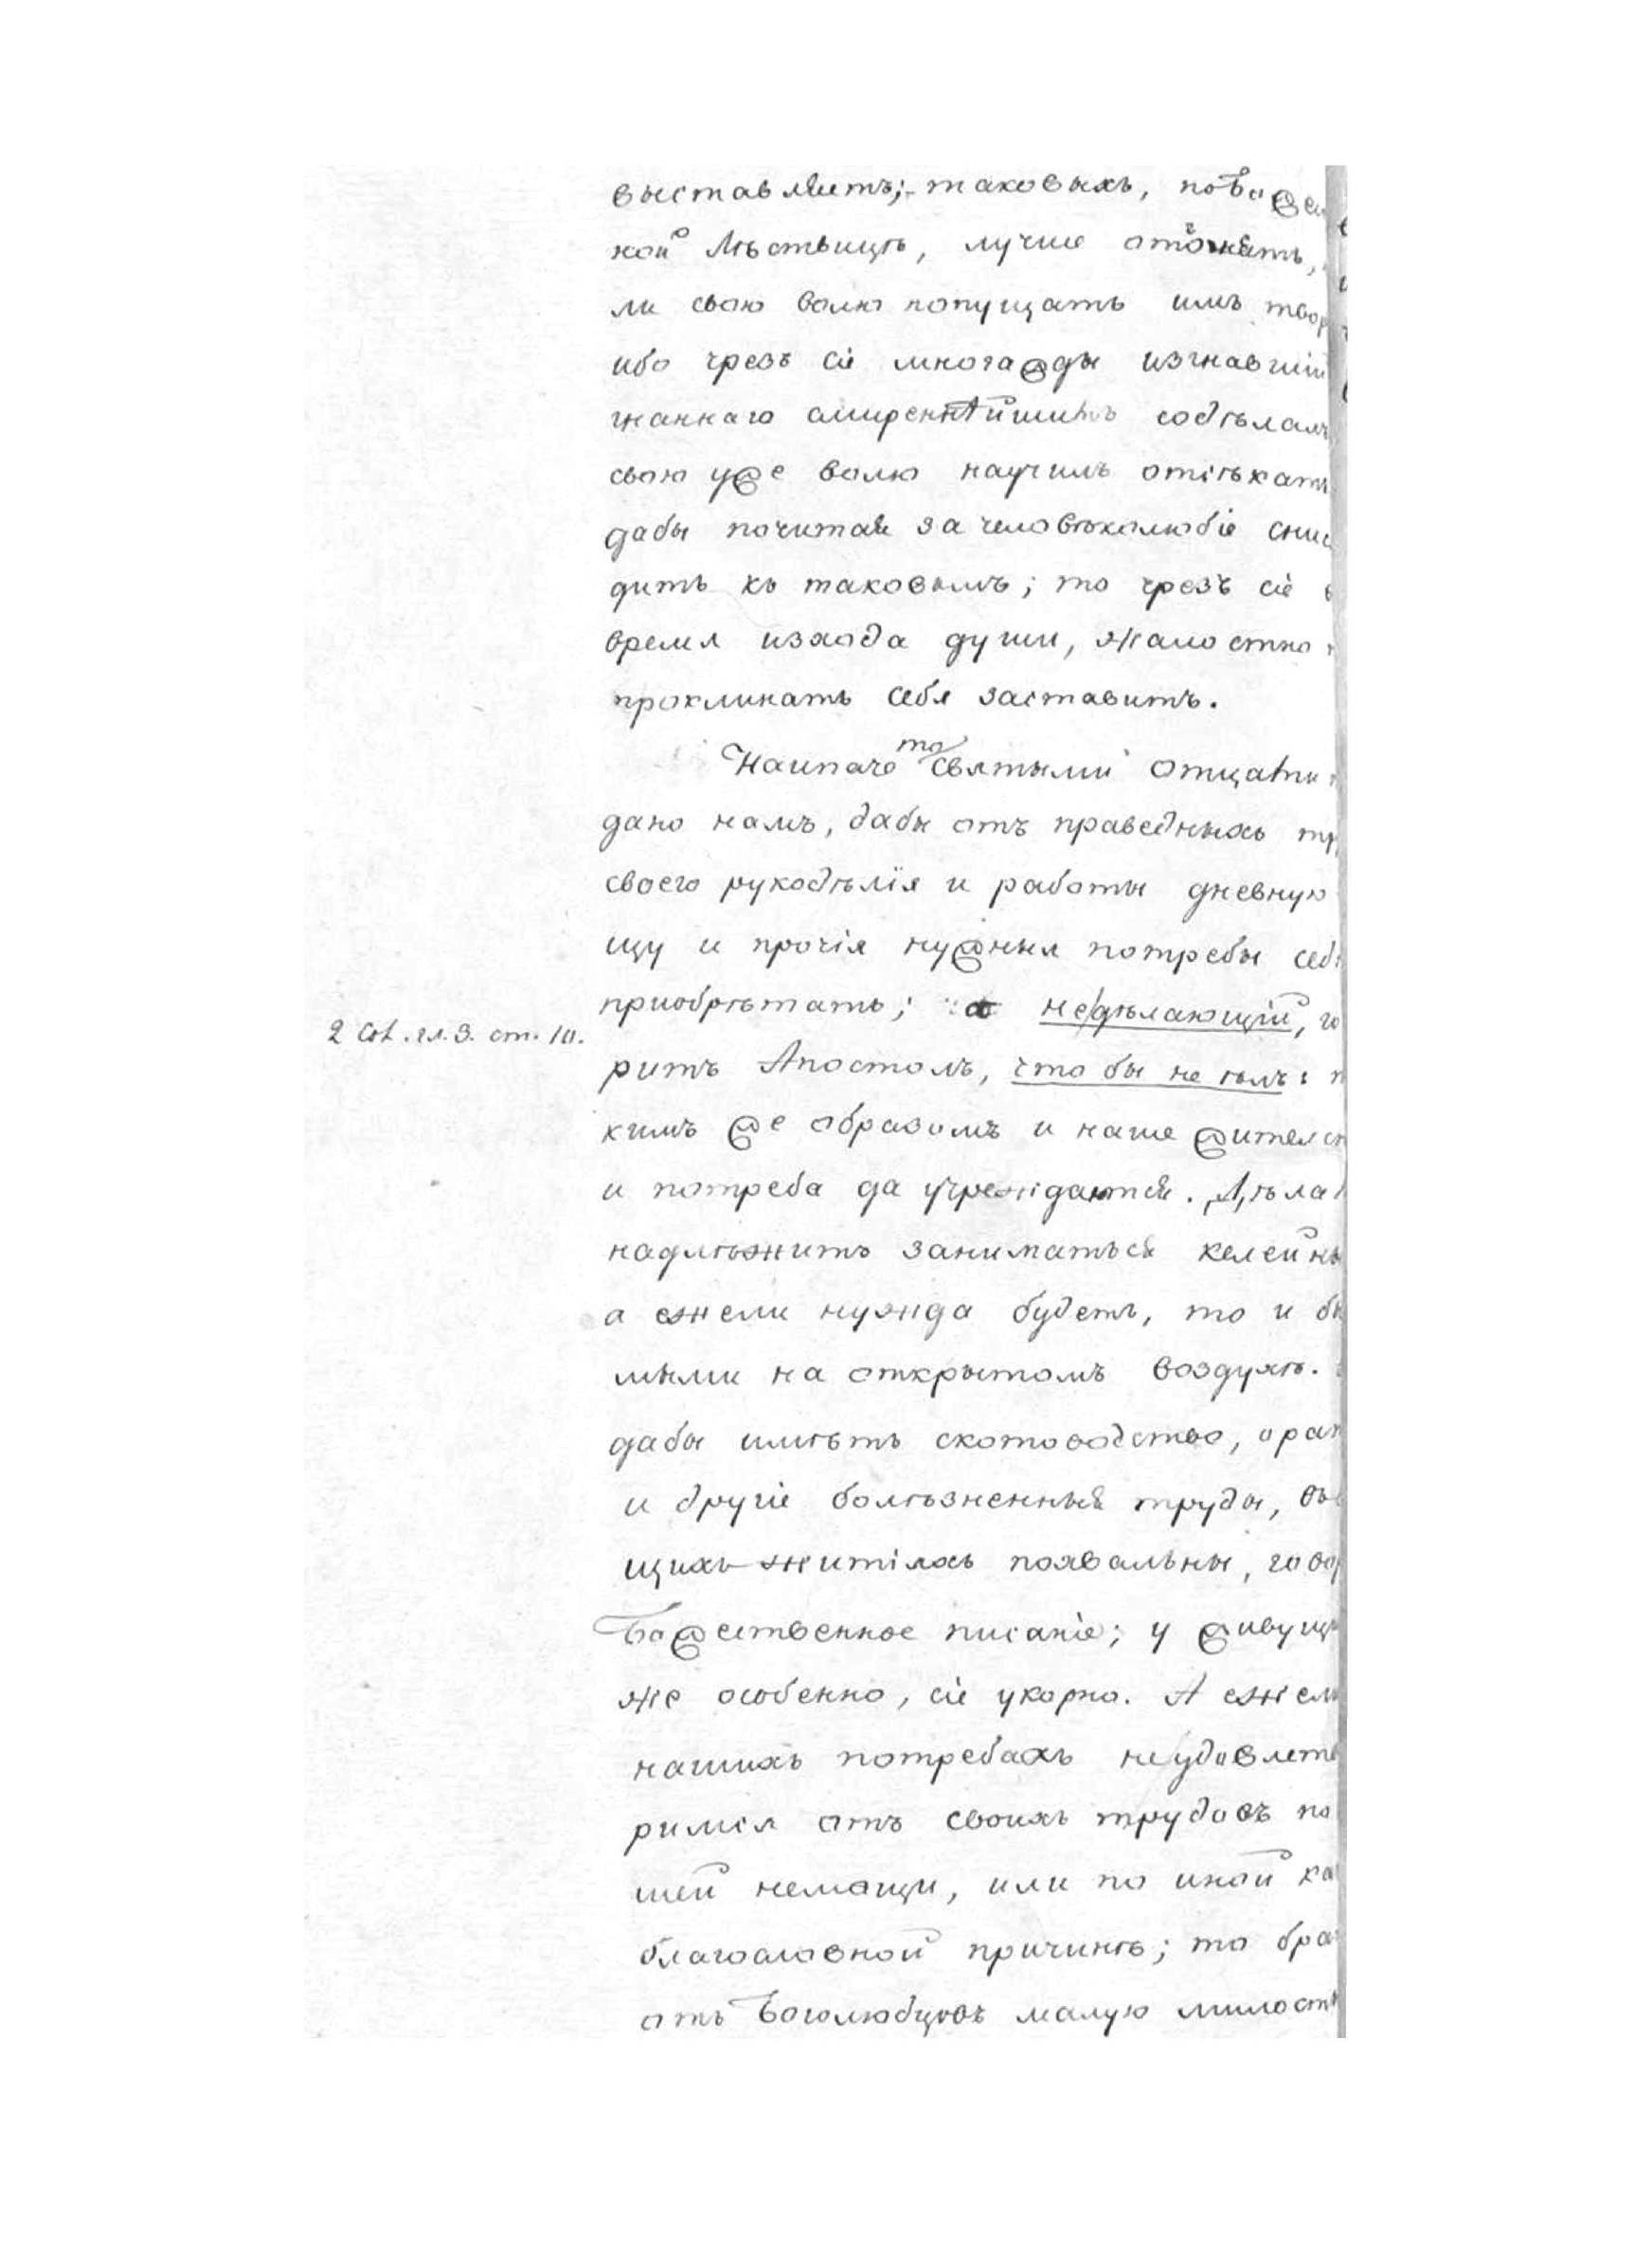 выставляетъ; таковыхъ, по Божест
ной Лѣствицѣ, лучше отгонять,
ли свою волю попущать имъ твор
ибо чрезъ сіе многажды изгнавшій
гнаннаго смиреннѣйшимъ содѣлалъ
свою уже волю научилъ отсѣкать
дабы почитая за человѣколюбіе снис
дить къ таковымъ; то чрезъ сіе в
время изхода души, жалостно
проклинать себя заставитъ.
Наипаче то святыми Отцами
дано намъ, дабы отъ праведныхъ тр
своего рукодѣлія и работы дневную
щу и прочія нужныя потребы себѣ
приобрѣтать; а недѣлающій, го
2 Сол. гл. 3. ст. 10.
ритъ Апостолъ, что бы не ѣлъ: т
кимъ же образомъ и наше жителст
и потреба да учреждаются. Дѣла
надлѣжитъ заниматься келейны
а ежели нужда будетъ, то и бы
мыми на открытомъ воздухѣ.
дабы имѣть скотоводство, орат
и другіе болѣзненныя труды, въ
щихъ житіяхъ похвальны, говор
Божественное писаніе; у живущи
же особенно, сіе укорно. А ежели
нашихъ потребахъ неудовлетв
римся отъ своихъ трудовъ по
шей немощи, или по иной ка
благословной причинѣ; то бра
отъ Боголюбцовъ малую милост